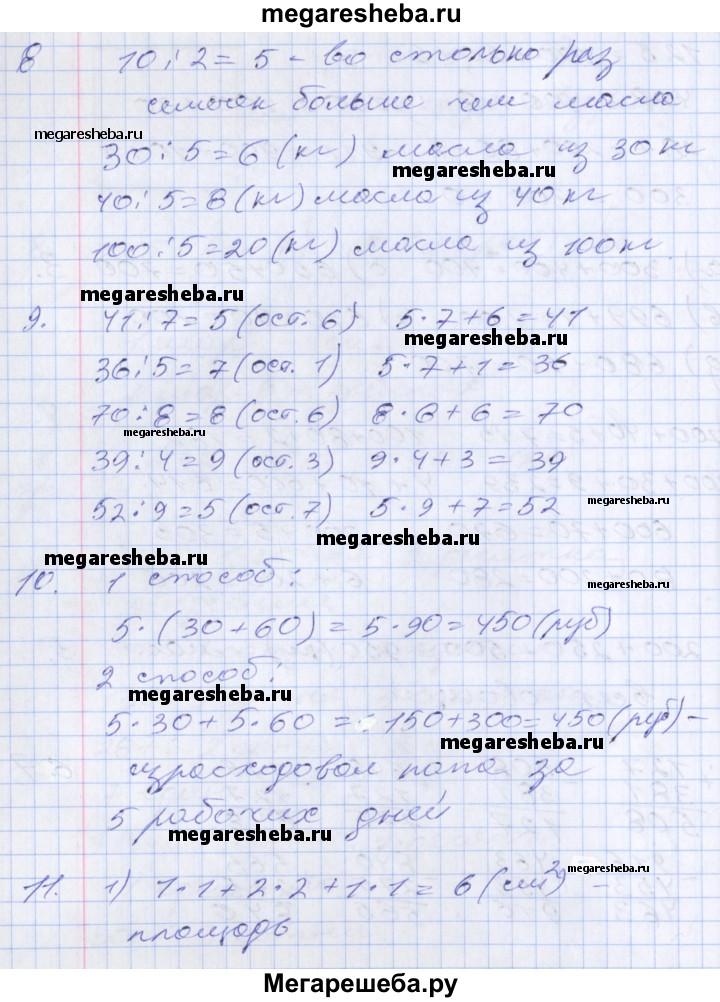 megaresheba.ru
8 10:2=5 - во столько раз
семечек больше чем масла
megaresheba.ru
30:5=6 (кг) масла из 30 кг
megaresheba.ru
40:5=8 (кг) масла из 40 кг
100:5=20 (кг) масла из 100 кг
megaresheba.ru
9. 41:7=5 (ост. 6) 5·7+6=41
megaresheba.ru
36:5=7 (ост. 1) 5·7+1=36
70:8=8 (ост. 6) 8·8+6=70
megaresheba.ru
39:4=9 (ост. 3) 9·4+3=39
52:9=5 (ост. 7) 5·9+7=52
megaresheba.ru
megaresheba.ru
megaresheba.ru
10. 1 способ:
megaresheba.ru
5·(30+60)=5·90=450 (руб)
2 способ:
megaresheba.ru
5·30+5·60=150+300=450 (руб) -
megaresheba.ru
израсходовал папа за
5 рабочих дней
megaresheba.ru
11. 1) 1·1+2·2+1·1=6 (см²) -
megaresheba.ru
площадь
Мегарешеба.ру